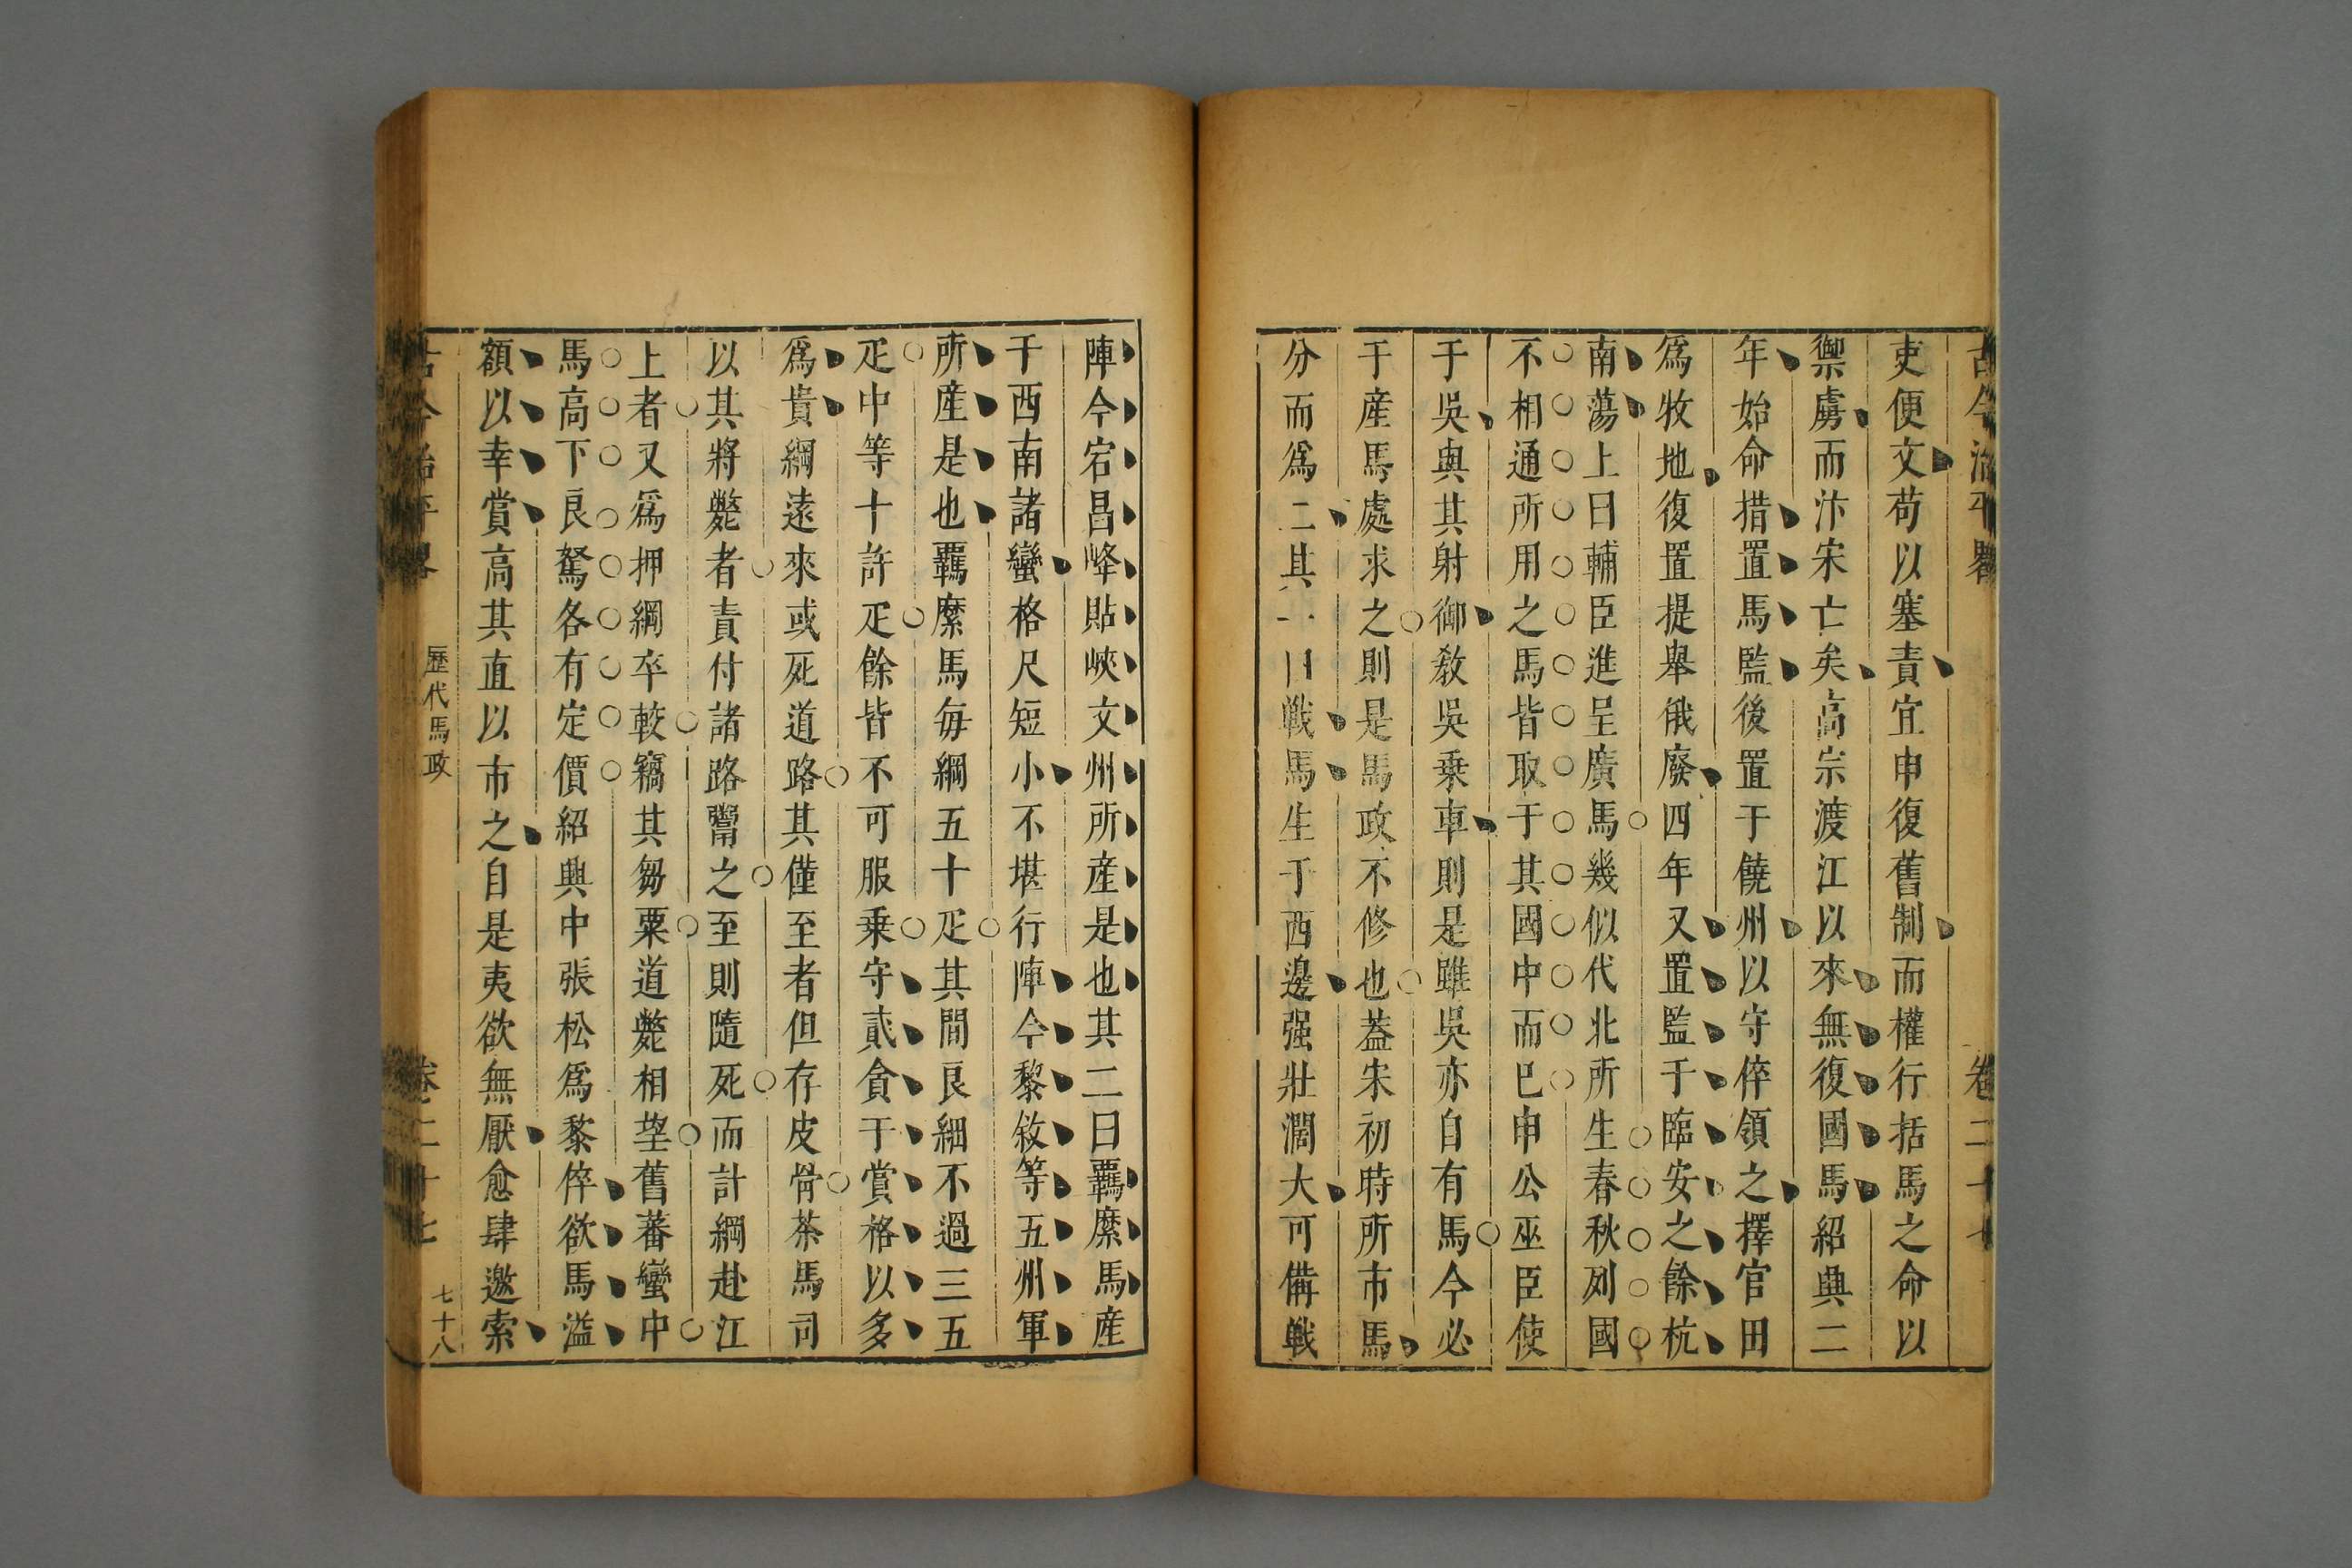 古今治平畧 卷二十七
吏便文苟以塞責宜申復舊制而權行括馬之命以
禦虜而汴宋亡矣高宗渡江以來無復國馬紹興二
年始命措置馬監後置于饒州以守倅領之擇官田
爲牧地復置提舉俄廢四年又置監于臨安之餘杭
南蕩上曰輔臣進呈廣馬幾似代北所生春秋列國
不相通所用之馬皆取于其國中而已申公巫臣使
于吳與其射御教吳乗車則是雖吳亦自有馬今必
于産馬處求之則是馬政不修也蓋宋初時所市馬
分而爲二其一曰戰馬生于西邊强壯濶大可備戰
陣今宕昌峰貼峽文州所産是也其二曰覊縻馬産
于西南諸蠻格尺短小不堪行陣今黎敘等五州軍
所産是也覊縻馬每綱五十疋其間良細不過三五
疋中等十許疋餘皆不可服乗守貳貪于賞格以多
爲貴綱遠來或死道路其僅至者但存皮骨茶馬司
以其將斃者責付諸路鬻之至則隨死而計綱赴江
上者又爲押綱卒較竊其芻粟道斃相望舊蕃蠻中
馬高下良駑各有定價紹興中張松爲黎倅欲馬溢
額以幸賞高其直以市之自是夷欲無厭愈肆邀索
古今治平畧 歷代馬政 卷二十七 七十八